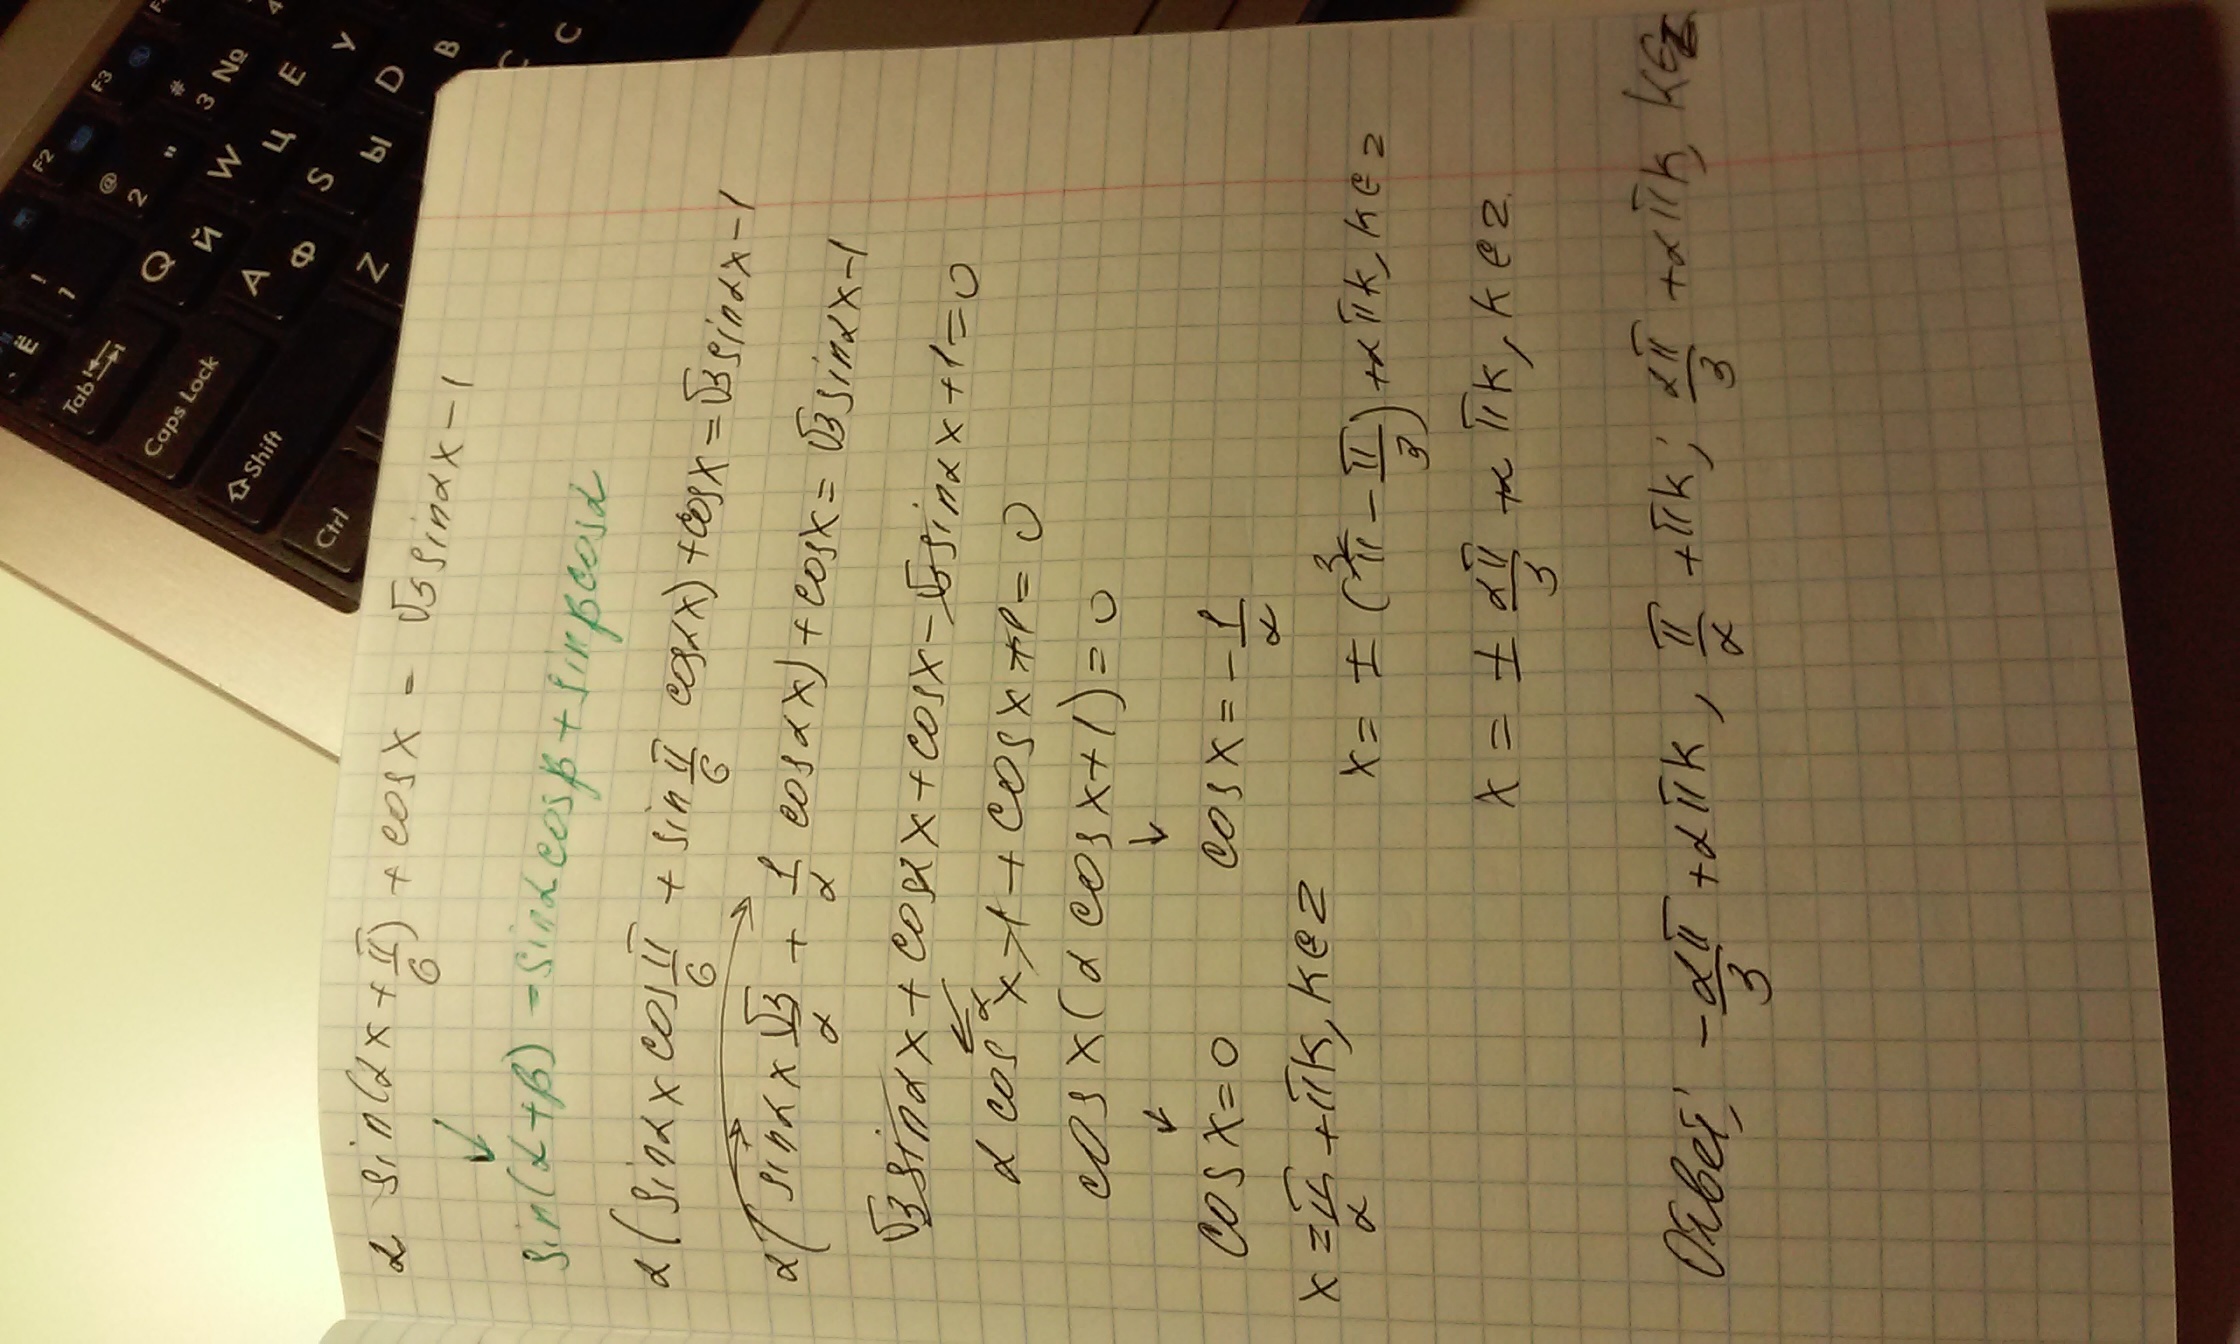 2 sin(2x + π/6) + cos x = √3 sin2x − 1
sin(α+β) = sinα cosβ + sinβ cosα
2(sin2x cos π/6 + sin π/6 cos2x) + cos x = √3 sin2x − 1
2(sin2x √3/2 + 1/2 cos2x) + cos x = √3 sin2x − 1
√3 sin2x + cos2x + cos x − √3 sin2x + 1 = 0
2 cos² x − 1 + cos x + 1 = 0
cos x (2 cos x + 1) = 0
cos x = 0 cos x = − 1/2
x = π/2 + πk, k ∈ z x = ± (π − π/3) + 2πk, k ∈ z
x = ± 2π/3 + 2πk, k ∈ z
Ответ: − 2π/3 + 2πk, π/2 + πk; 2π/3 + 2πk, k ∈ z
Ctrl
Shift
Caps Lock
Tab
Ё
! 1
@ 2 "
# 3 №
F2
F3
Q Й
W Ц
E У
A Ф
S Ы
D В
Z
C С